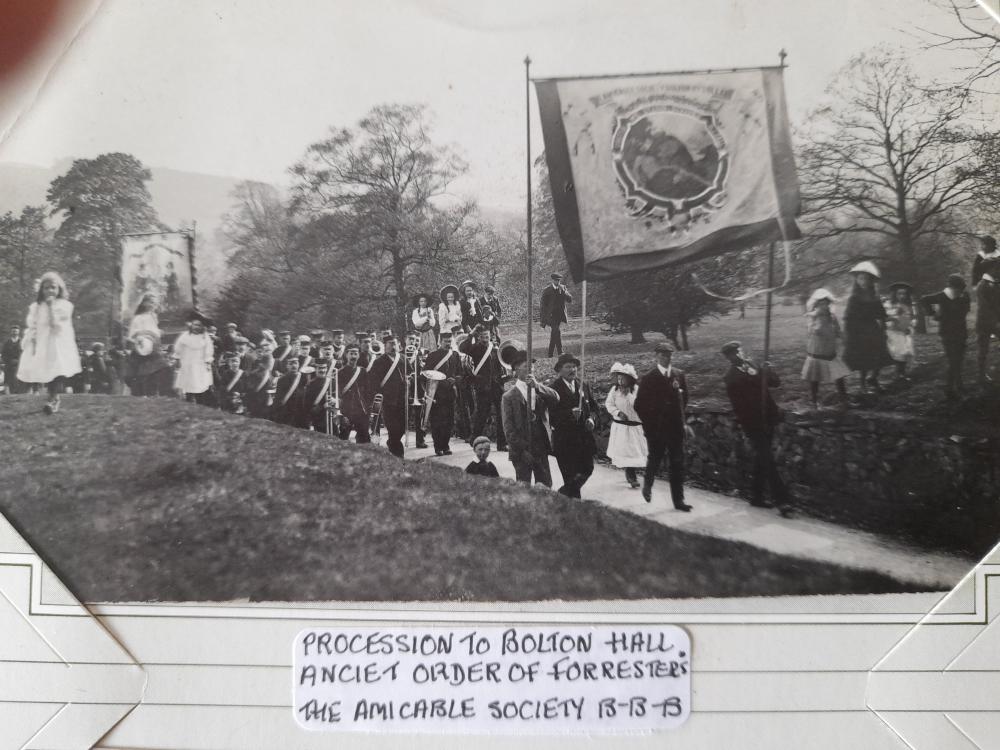 PROCESSION TO BOLTON HALL.
ANCIET ORDER OF FORRESTERS
THE AMICABLE SOCIETY B-B-B